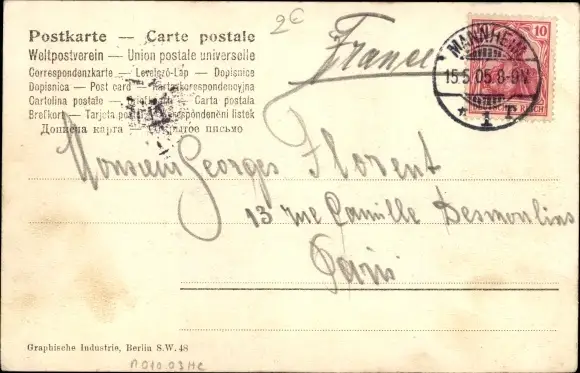 Postkarte — Carte postale
Weltpostverein — Union postale universelle
Correspondenzkarte — Levelező-Lap — Dopisnice
Dopisnica — Post card —
Cartolina postale — — Carta postala
Brefkort — Tarjeta postal — Korespondenční lístek
Дописна карта — Открытое письмо
2€
France
MANNHEIM
15.5.05.8-9V.
* 1 T.
10
DEUTSCHES REICH
Monsieur Georges Florent
13 rue Camille Desmoulins
Paris
Graphische Industrie, Berlin S.W. 48